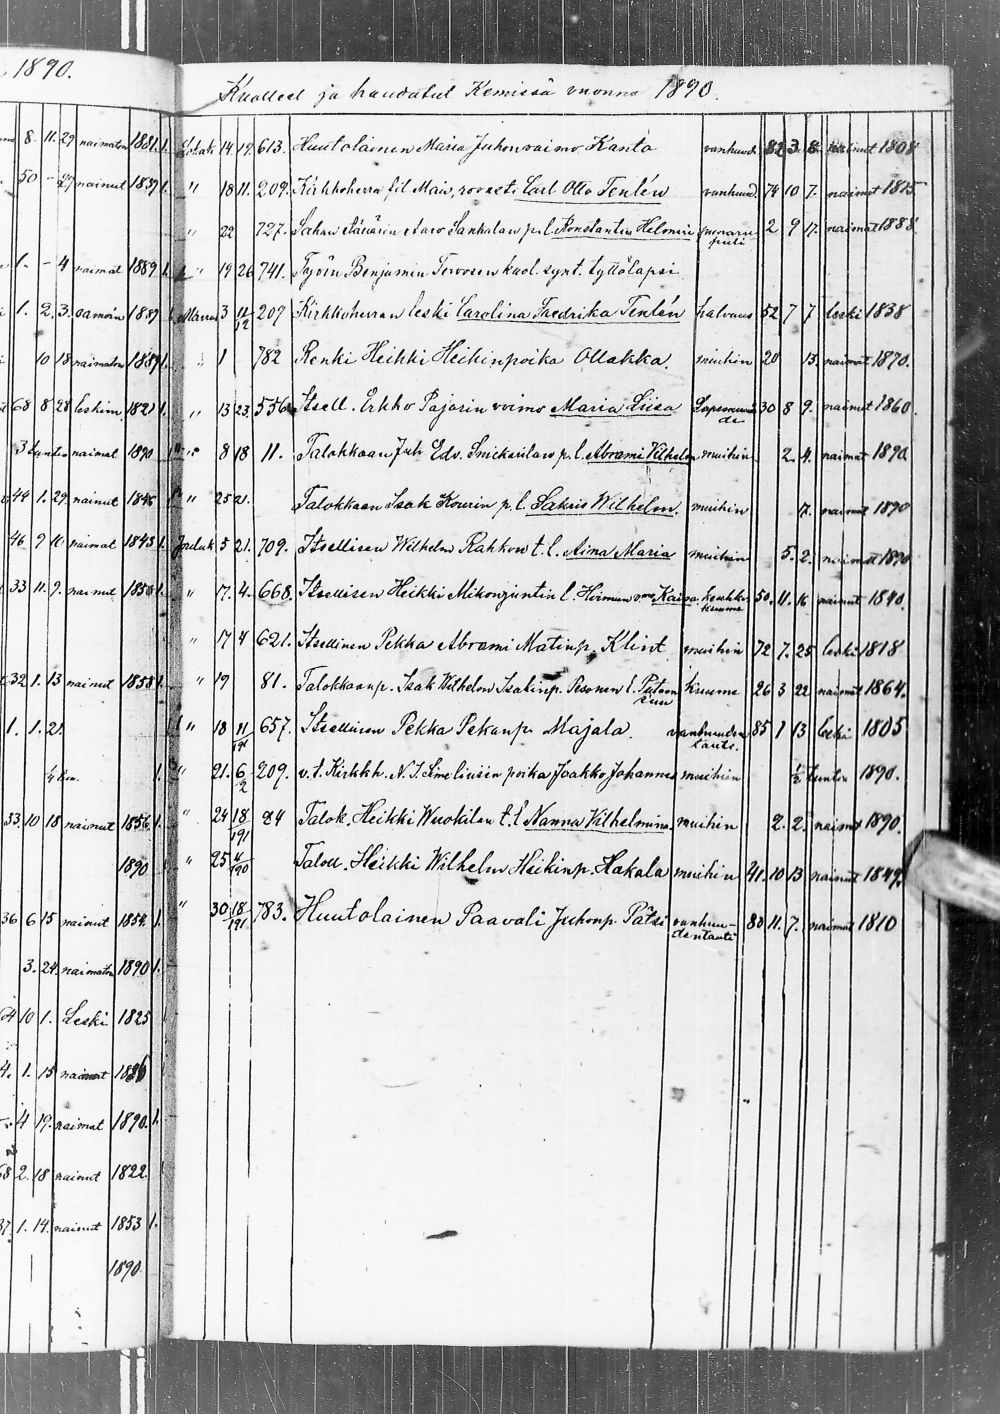 1890.
Kuolleet ja haudatut Kemissä vuonna 1890.
8. 11. 29 naimaton 1881. 1.
50 - 29 naimut 1839 1.
1. - 4 naimat 1889 1.
1. 2. 3. samoin 1889
10 18 naimaton 1889 1.
68 8 28 leskim 1821 1.
naimat 1890
44 1. 29. naimut 1846
46 9 10 naimat 1843 1.
33 11. 9. naimut 1856 1.
32 1. 13 naimut 1858 1.
1. 1. 21.
33 10 18 naimut 1856 1.
1890
36 6 15 naimut 1854 1.
3. 24. naimaton 1890 1.
64 10 1. Leski 1825
4. 1. 15 naimat 1886
4 19. naimat 1890. 1.
68 2. 18 naimut 1822.
37. 1. 14. naimut 1853 1.
1890.
Lokak 14. 19. 613. Huutolainen Maria Juhonvaimo Kanto vanhuud. 82 3. 8. naimut 1808
" 18 11. 209. Kirkkoherra fil Mais, rovasti Carl Otto Tenlén vanhuud. 74 10 7. naimat 1815
" 22 727. Sahan Aaro Sankalan p. l. Konstantin Helmeri 2 9 17. naimat 1888
" 19 26 741. Työm Benjamin Tervosen kuol. synt. tyttölapsi
Marras 3 11/12 207 Kirkkoherran leski Carolina Fredrika Tenlén halvaus 52 7 7 leski 1838
" 1 782 Renki Heikki Heikinpoika Ollakka. muihin 20 13. naimat 1870.
" 13 23. 556 Itsell. Erkko Pajarin vaimo Maria Liisa Lapsenvuode 30 8 9. naimut 1860.
" 8 18 11. Talokkaan Juh Edv. p. l. Abrami Vilhelm muihin 2. 4. naimat 1890.
" 25 21. Talokkaan Isak Kourin p. l. Sakris Wilhelm. muihin 17. naimat 1890
Jouluk 5 21. 709. Itsellisen Wilhelm Rahkon t. l. Aina Maria muihin 5. 2. naimat 1890
" 7. 4. 668. Itsellisen Heikki Mikonjuntin l. Hirmun vmo Kaisa keuhko kuume 50. 11. 16 naimut 1840.
" 17 4 621. Itsellinen Pekka Abrami Matinp. Klint muihin 72 7. 25 leski 1818
" 19 81. Talokkaanp. Isak Wilhelm Isakinp. Pesonen l. kuume 26 3 22 naimat 1864.
" 18 11/191 657. Itsellinen Pekka Pekanp. Majala. vanhuuden tauti. 85 1 13 leski 1805
" 21. 6/2 209. v. t. Kirkkh. N. J. poika Jaakko Johannes muihin 1/2 tuntia 1890.
" 24 18/191 84 Talok. Heikki Wuokilan t. l. Nanna Vilhelmina muihin 2. 2. naimat 1890.
" 25 4/190 Talok. Heikki Wilhelm Heikinp. Hakala muihin 41. 10 13 naimut 1849.
" 30 18/191 783. Huutolainen Paavali Juhonp. Pätsi vanhuudentauti 80 11. 7. naimut 1810